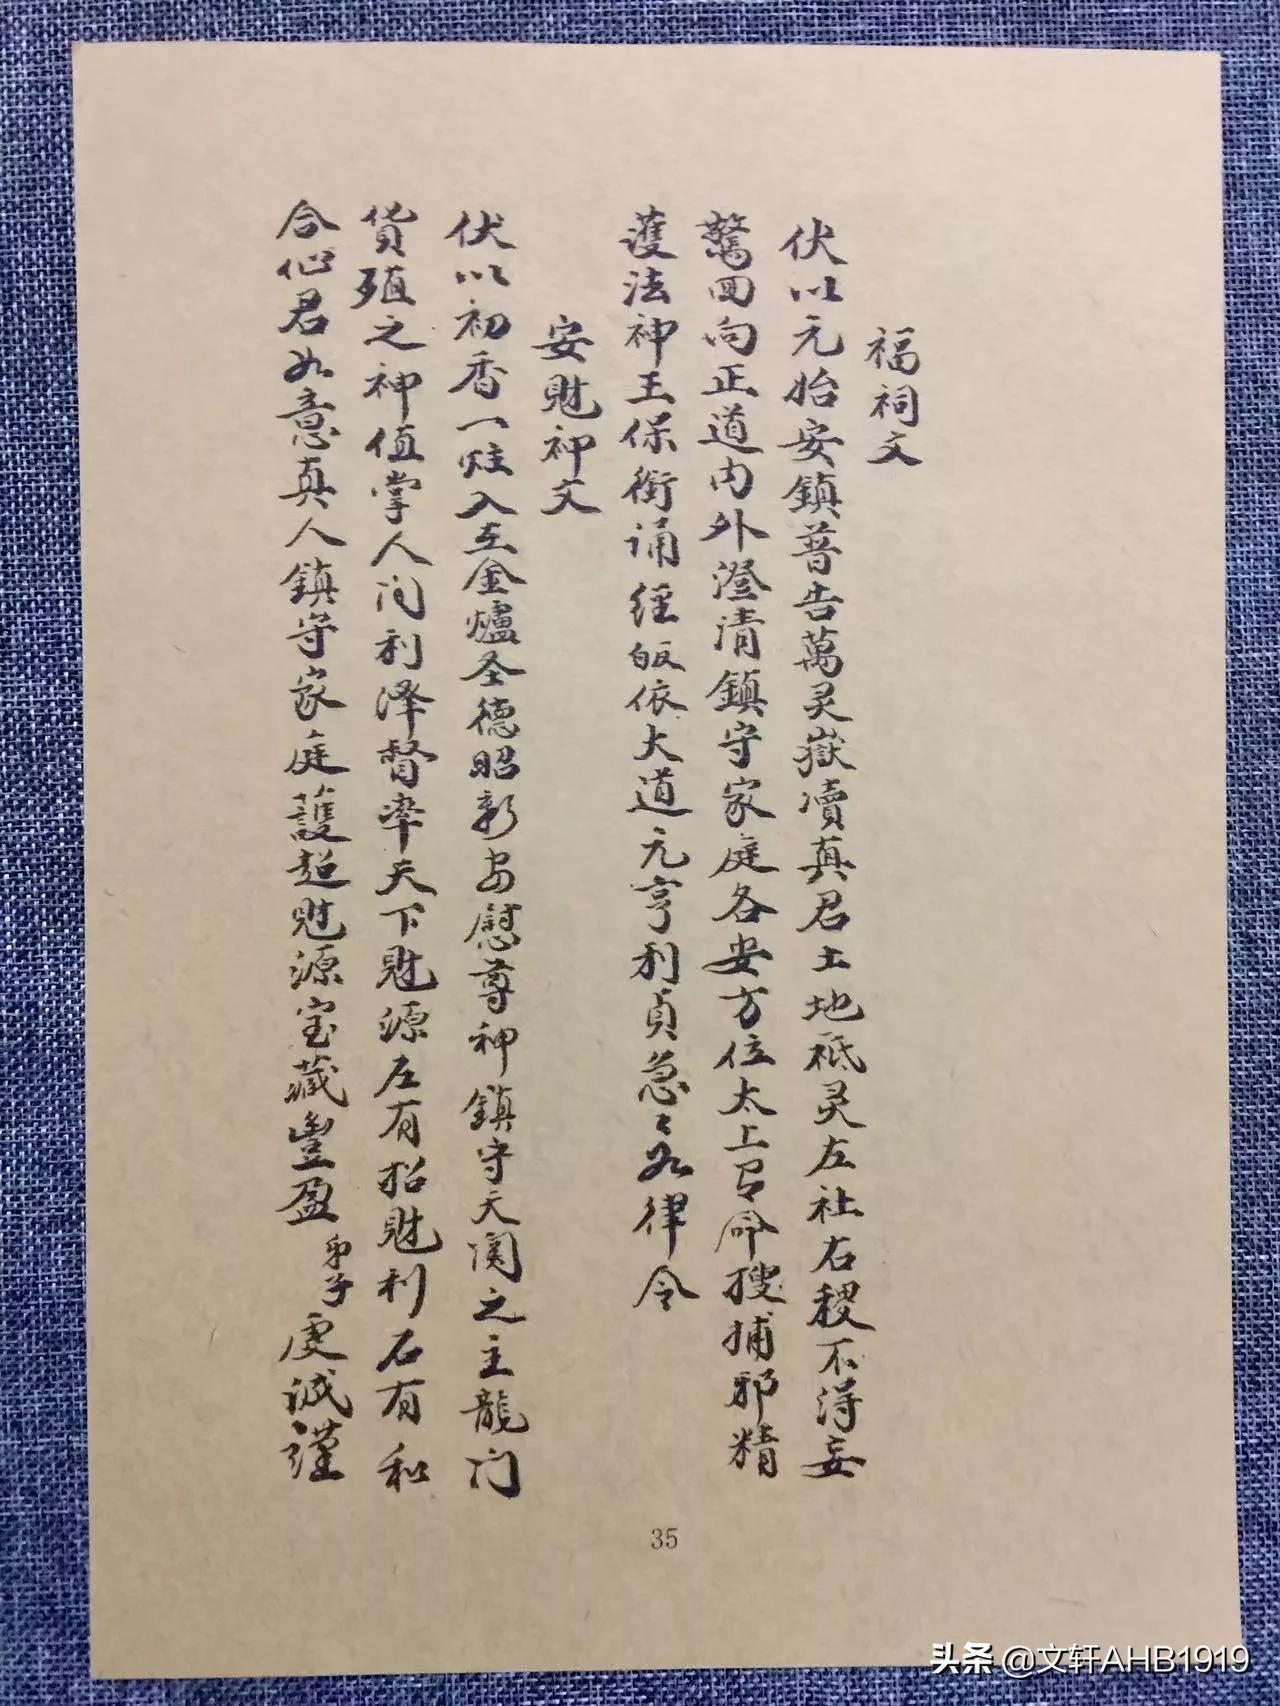 福祠文
伏以元始安鎮普告萬灵嶽凟真君土地祗灵左社右稷不得妄
驚回向正道内外澄清鎮守家庭各安方位太上有命搜捕邪精
護法神王保衛诵经皈依大道元亨利貞急々如律令
安财神文
伏以初香一炷入在金爐圣德昭彰安慰尊神鎮守天関之主龍门
货殖之神值掌人间利泽督率天下财源左有招财利右有和
合仙君如意真人鎮守家庭護超财源宝藏豊盈弟子虔诚謹
35
头条 @文轩AHB1919